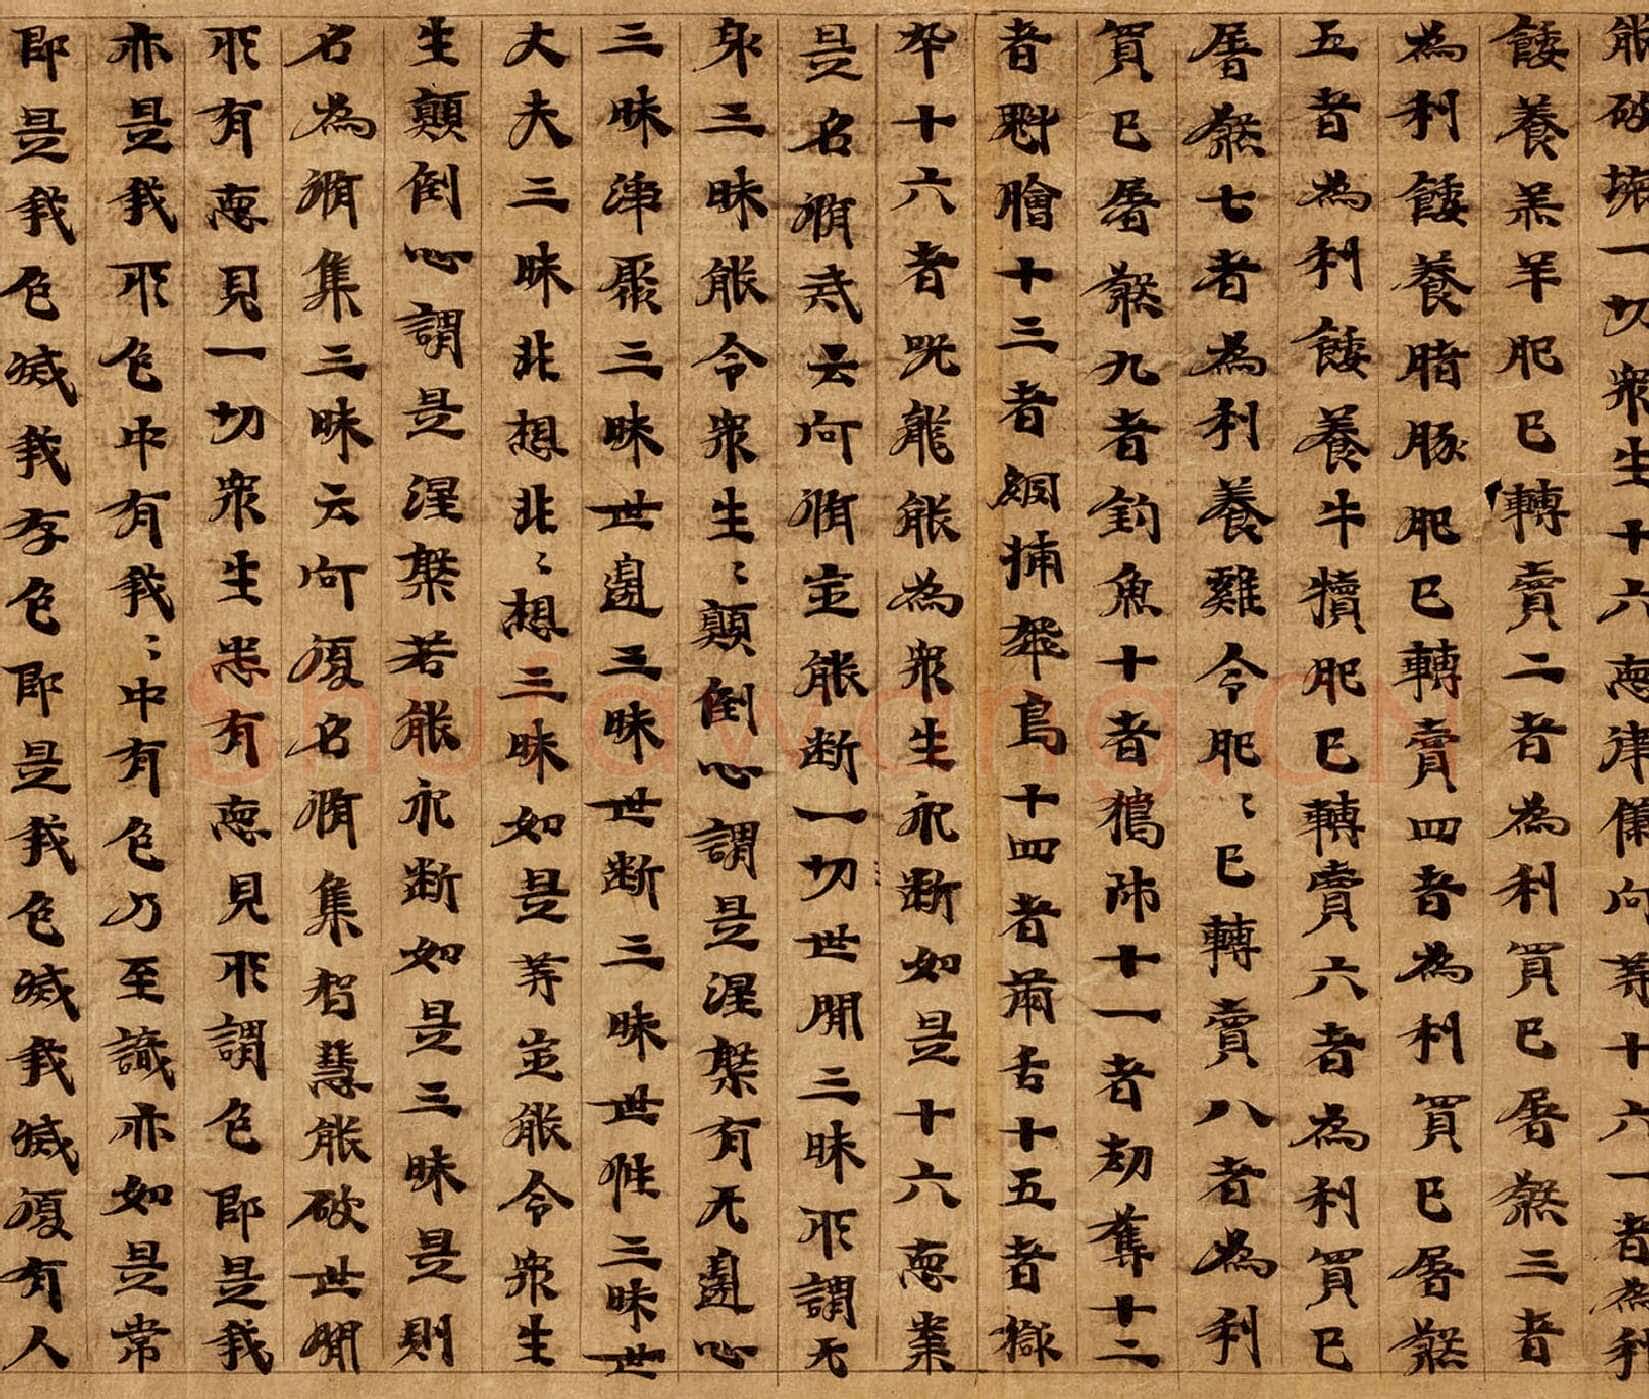 能破壞一切衆生十六惡律儀何等十六一者為利
餧養羔羊肥已轉賣二者為利買已屠煞三者
為利餧養腊豚肥已轉賣四者為利買已屠煞
五者為利餧養牛犢肥已轉賣六者為利買已
屠煞七者為利養雞令肥〻已轉賣八者為利
買已屠煞九者釣魚十者獦師十一者劫奪十二
者魁膾十三者網捕飛鳥十四者兩舌十五者獄
卒十六者呪龍能為衆生永斷如是十六惡業
是名脩戒云何脩定能断一切世間三昧所謂无
身三昧能令衆生〻顛倒心謂是涅槃有无邊心
三昧淨聚三昧世邊三昧世断三昧世性三昧世
丈夫三昧非想非〻想三昧如是等定能令衆生
生顛倒心謂是涅槃若能永断如是三昧是則
名為脩集三昧云何復名脩集智慧能破世間
所有惡見一切衆生悉有惡見所謂色即是我
亦是我所色中有我〻中有色乃至識亦如是常
即是我色滅我存色即是我色滅我滅復有人
Shufawang.CN